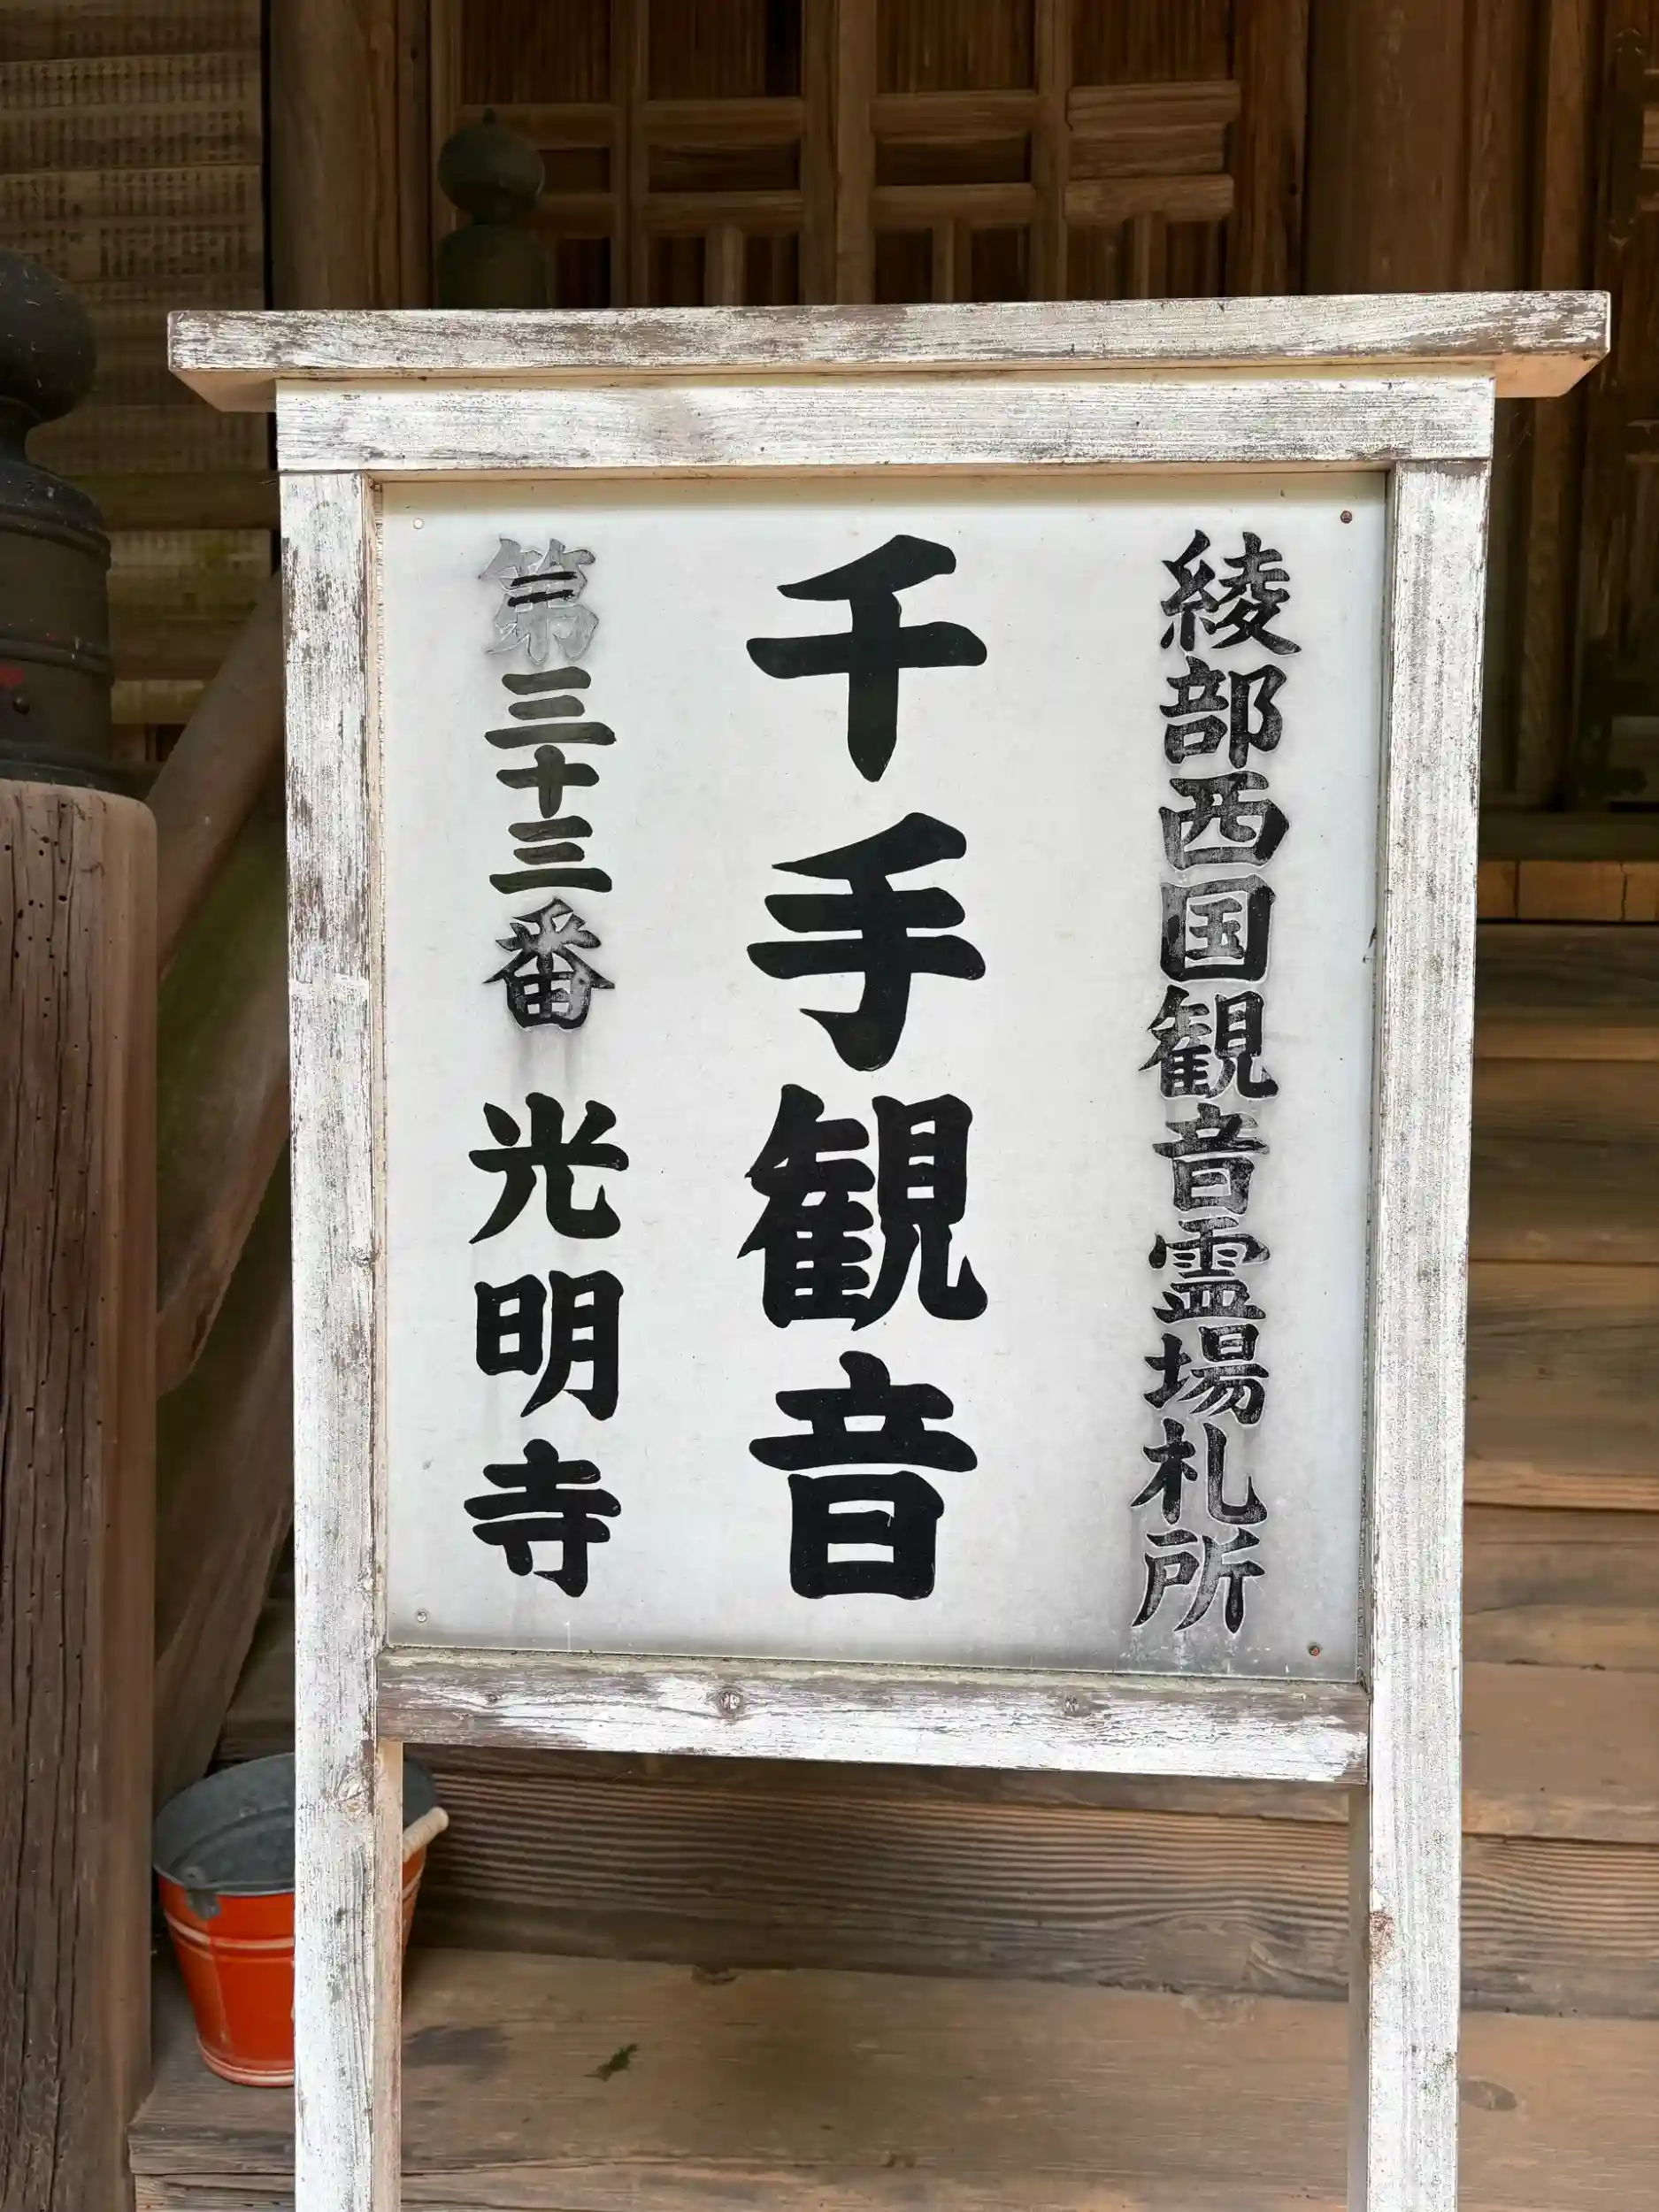 綾部西国観音霊場札所
千手観音
第三十三番 光明寺